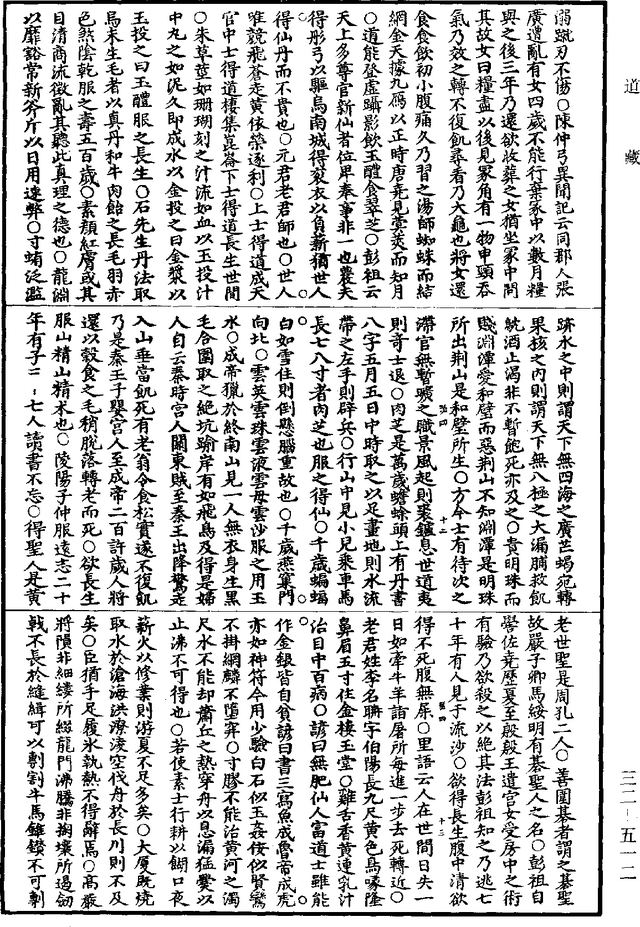 道藏
三二—五一二
溺跣刃不傷○陳仲弓異聞記云同郡人張
廣遭亂有女四歲不能行棄冢中以數月糧
與之後三年乃還欲收葬之女猶坐冢中問
其故女曰糧盡以後見冢角有一物申頸吞
氣乃效之轉不復飢尋看乃大龜也將女還
食食飲初小腹痛久乃習之湯師蜘蛛而結
網金天據九鳸以正時唐堯見蓂莢而知月
○道能登虛躡影飲玉醴食翠芝○彭祖云
天上多尊官新仙者位卑奉事非一也農夫
得彤弓以驅鳥南城得衮衣以負薪猶世人
得仙丹而不貴也○元君老君師也○世人
唯競飛蒼走黃依榮逐利○上士得道成天
官中士得道棲集崑崙下士得道長生世間
○朱草莖如珊瑚刻之汁流如血以玉投汁
中丸之如泥久即成水以金投之曰金漿以
玉投之曰玉醴服之長生○石先生丹法取
烏未生毛者以真丹和牛肉飴之長毛羽赤
色煞陰乾服之壽五百歲○素顏紅膚或其
目清商流徵亂其聽此真理之德也○龍淵
以靡豁常新斧斤以日用速弊○寸蛕泛濫
跡水之中則謂天下無四海之廣芒蝎宛轉
果孩之內則謂天下無八極之大漏脯救飢
鴆酒止渴非不暫飽死亦及之○貴明珠而
賤淵潭愛和璧而惡荆山不知淵潭是明珠
所出荆山是和璧所生○方今士有待次之
滯官無暫曠之職景風起則裘鑪息世道夷
則奇士退○肉芝是萬歲蟾蜍頭上有丹書
八字五月五日中時取之以足畫地則水流
帶之左手則辟兵○行山中見小兒乘車馬
長七八寸者肉芝也服之得仙○千歲蝙蝠
白如雪住則倒懸腦重故也○千歲燕窠門
向北○雲英雲珠雲液雲母雲沙服之用玉
水○成帝獵於終南山見一人無衣身生黑
毛合圍取之絕坑踰岸有如飛鳥及得是婦
人自云秦時宮人關東賊至秦王出降驚走
入山垂當飢死有老翁令食松實遂不復飢
乃是秦王子嬰宮人至成帝二百許歲人將
還以穀食之毛稍脫落轉老而死○欲長生
服山精山精朮也○陵陽子仲服遠志二十
年有子二十七人讀書不忘○得聖人是黃
老世聖是周孔二人○善圍棊者謂之棊聖
故嚴子卿馬綏明有棊聖人之名○彭祖自
學佐堯歷夏至殷殷王遣宮女受房中之術
有驗乃欲殺之以絕其法彭祖知之乃逃七
十年有人見于流沙○欲得長生腹中清欲
得不死腹無屎○里語云人在世間日失一
日如牽牛羊詣屠所每進一步去死轉近○
老君姓李名聃字伯陽長九尺黃色鳥喙隆
鼻眉五寸住金樓玉堂○雞舌香黃連乳汁
治目中百病○諺曰無肥仙人富道士雖能
作金銀皆自貧諺曰書三寫魚成魯帝成虎
亦如神符今用少驗白石似玉姦佞似賢鸞
不掛網麟不墮穽○寸膠不能治黃河之濁
尺水不能却蕭丘之熱穿舟以息漏猛爨以
止沸不可得也○若使素士行耕以餬口夜
薪火以修業則游夏不足多矣○大厦既燒
取水於滄海洪潦淩空伐丹於長川則不及
矣○臣猶手足履氷執熱不得辭焉○高巖
將隕非細縷所綴龍門沸騰非掬壤所遏劒
戟不長於縫緝可以剸割牛馬錐鑽不可剸